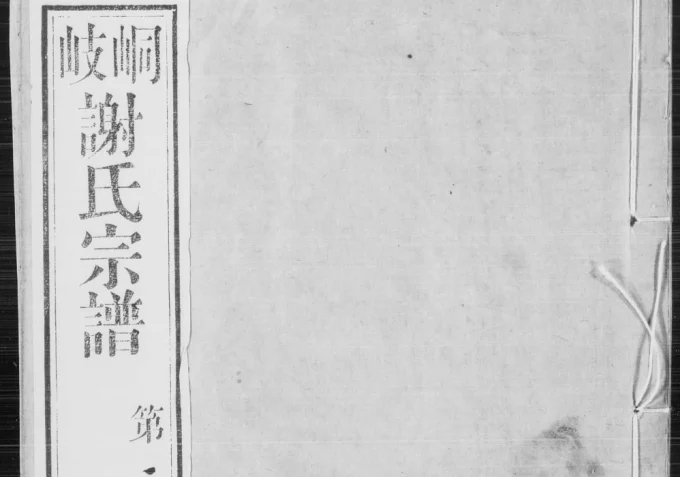 峒岐謝氏宗譜
第